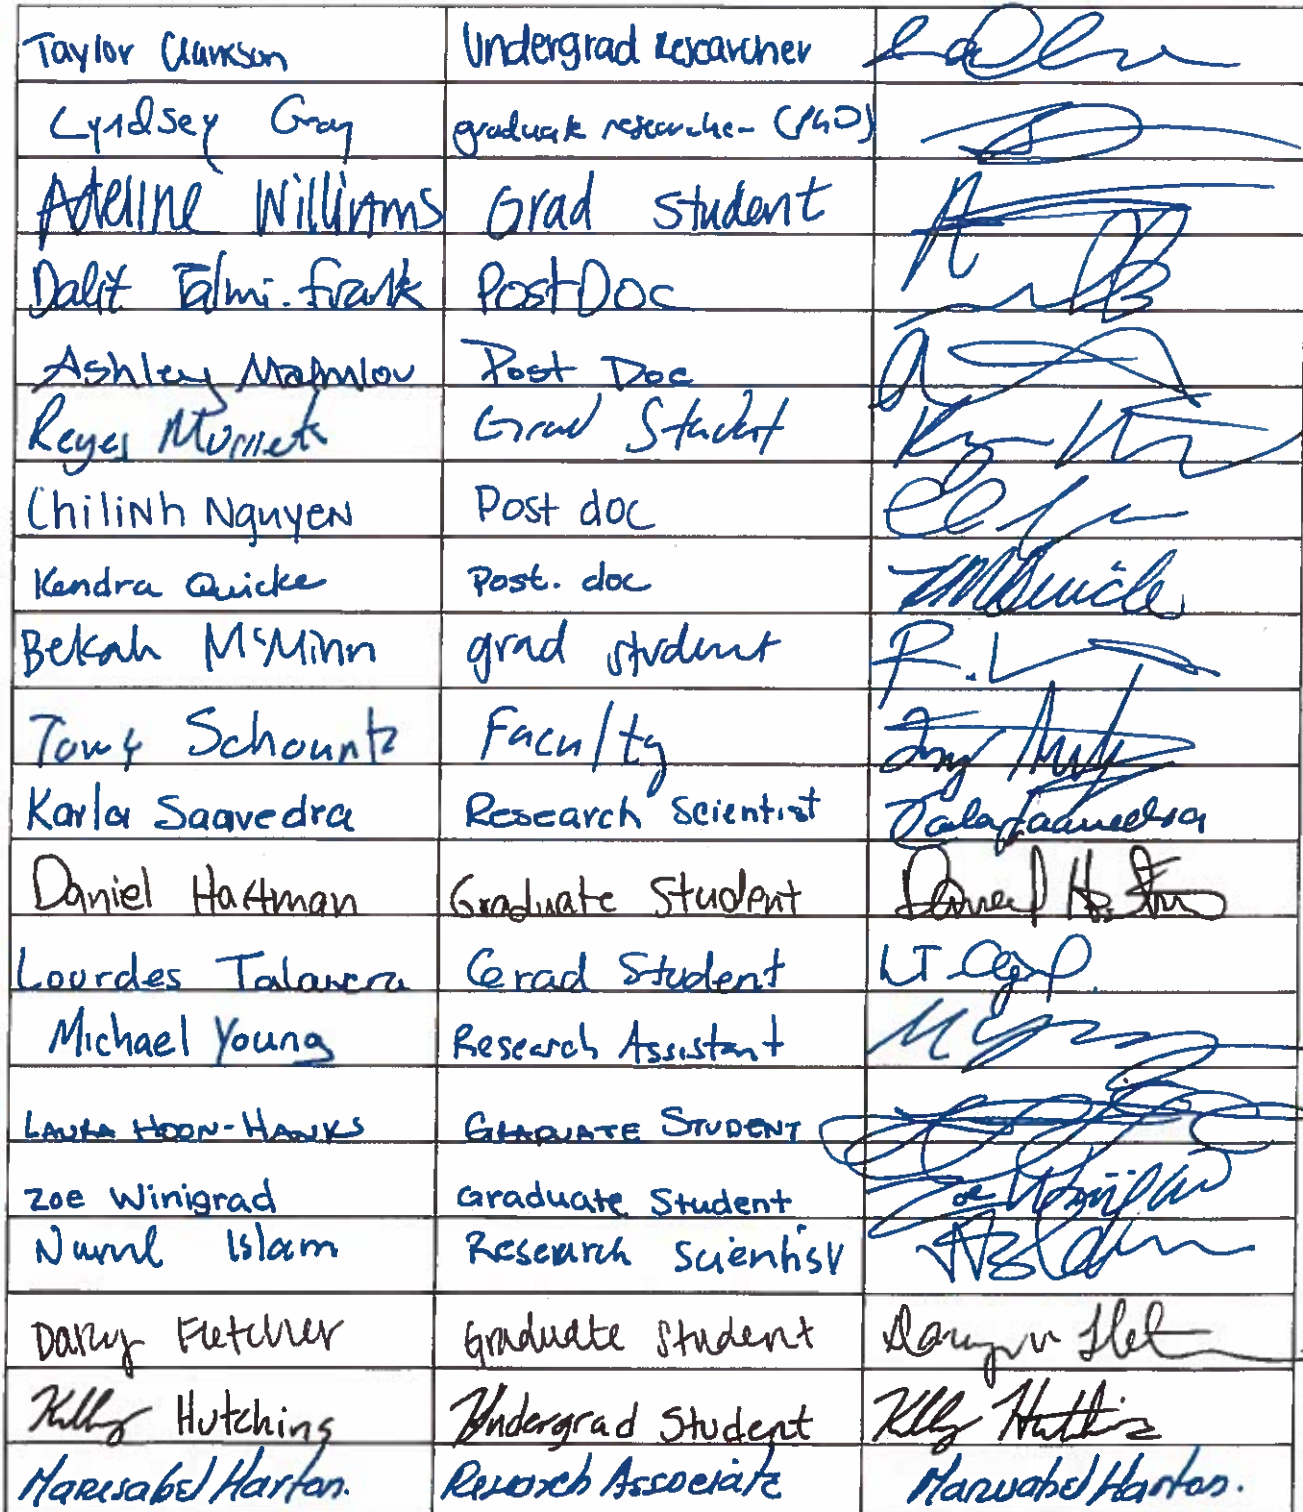 Taylor Clarkson Undergrad Researcher
Lyndsey Gray graduate researcher (PhD)
Adeline Williams Grad student
Dalit Talmi-Frank PostDoc
Ashley Post Doc
Reyes Murrieta Grad Student
ChiliNh NguyeN Post doc
Kendra Quicke Post. doc
Bekah McMinn grad student
Tony Schountz Faculty
Karla Saavedra Research Scientist Karla Saavedra
Daniel Hartman Graduate Student Daniel Hartman
Lourdes Talavera Grad Student
Michael Young Research Assistant
LAURA HOON-HANKS GRADUATE STUDENT
Zoe Winigrad Graduate Student
Nurul Islam Research Scientist
Fletcher Graduate Student
Kelly Hutching Undergrad Student Kelly
Marisabel Harton. Research Associate Marisabel Harton.